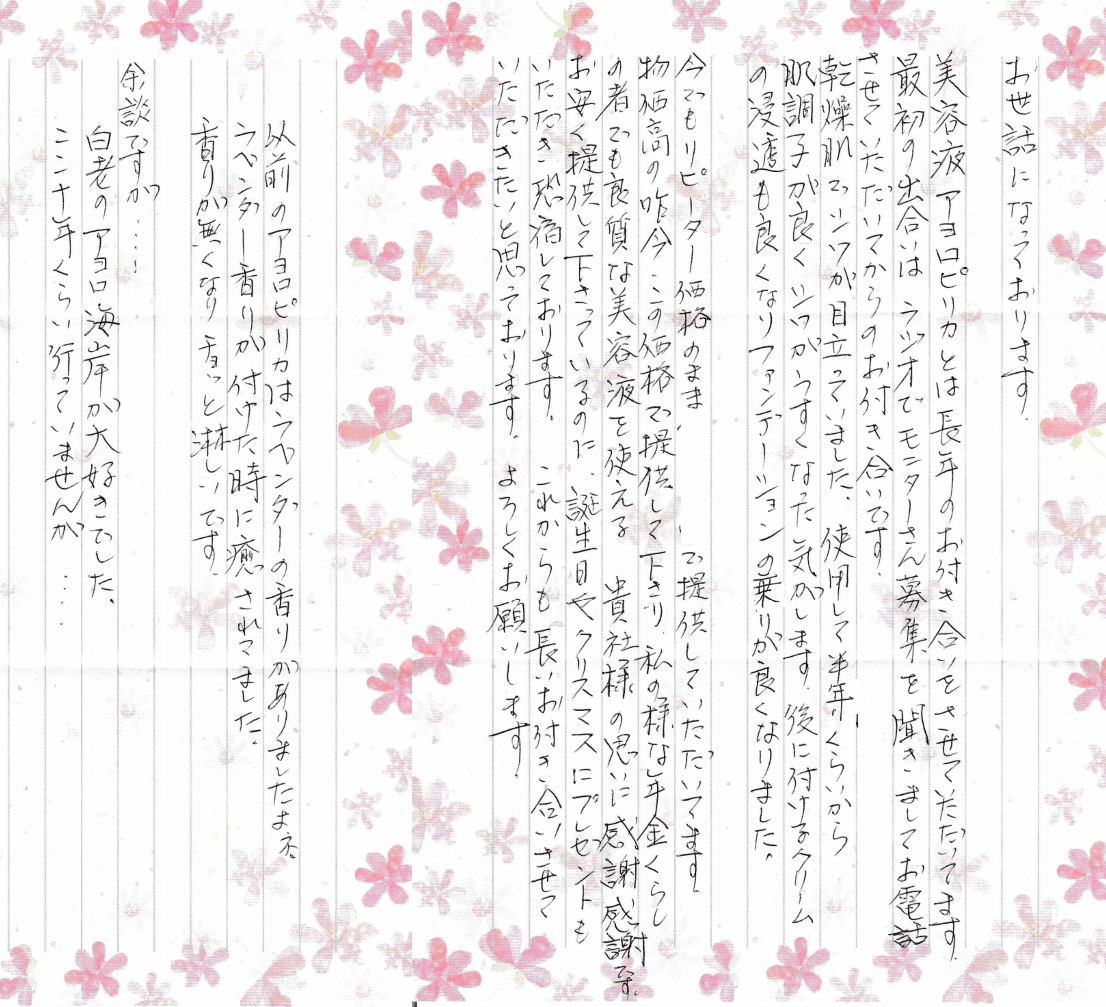 お世話になっております。
美容液アヨロピリカとは長年のお付き合いをさせていただいてます。
最初の出合いはラヅオでモニターさん募集を聞きましてお電話
させていただいてからのお付き合いです。
乾燥肌でシワが目立っていました。使用して半年くらいから
肌調子が良くシワがうすくなった気がします。後に付けるクリーム
の浸透も良くなりファンデーションの乗りが良くなりました。
今でもリピーター価格のまま、で提供していただいてます。
物価高の昨今この価格で提供して下さり、私の様な年金くらし
の者でも良質な美容液を使える 貴社様の思いに感謝感謝です。
お安く提供して下さっているのに、誕生日やクリスマスにプレゼントも
いただき恐縮しております。 これからも長いお付き合いさせて
いただきたいと思っております。よろしくお願いします。
以前のアヨロピリカはラベンダーの香りがありましたよネ。
ラベンダー香りが付けた時に癒されてました。
香りが無くなりチョッと淋しいです。
余談ですが・・・・
白老のアヨロ海岸が大好きでした。
ここ十年くらい行っていませんが・・・・